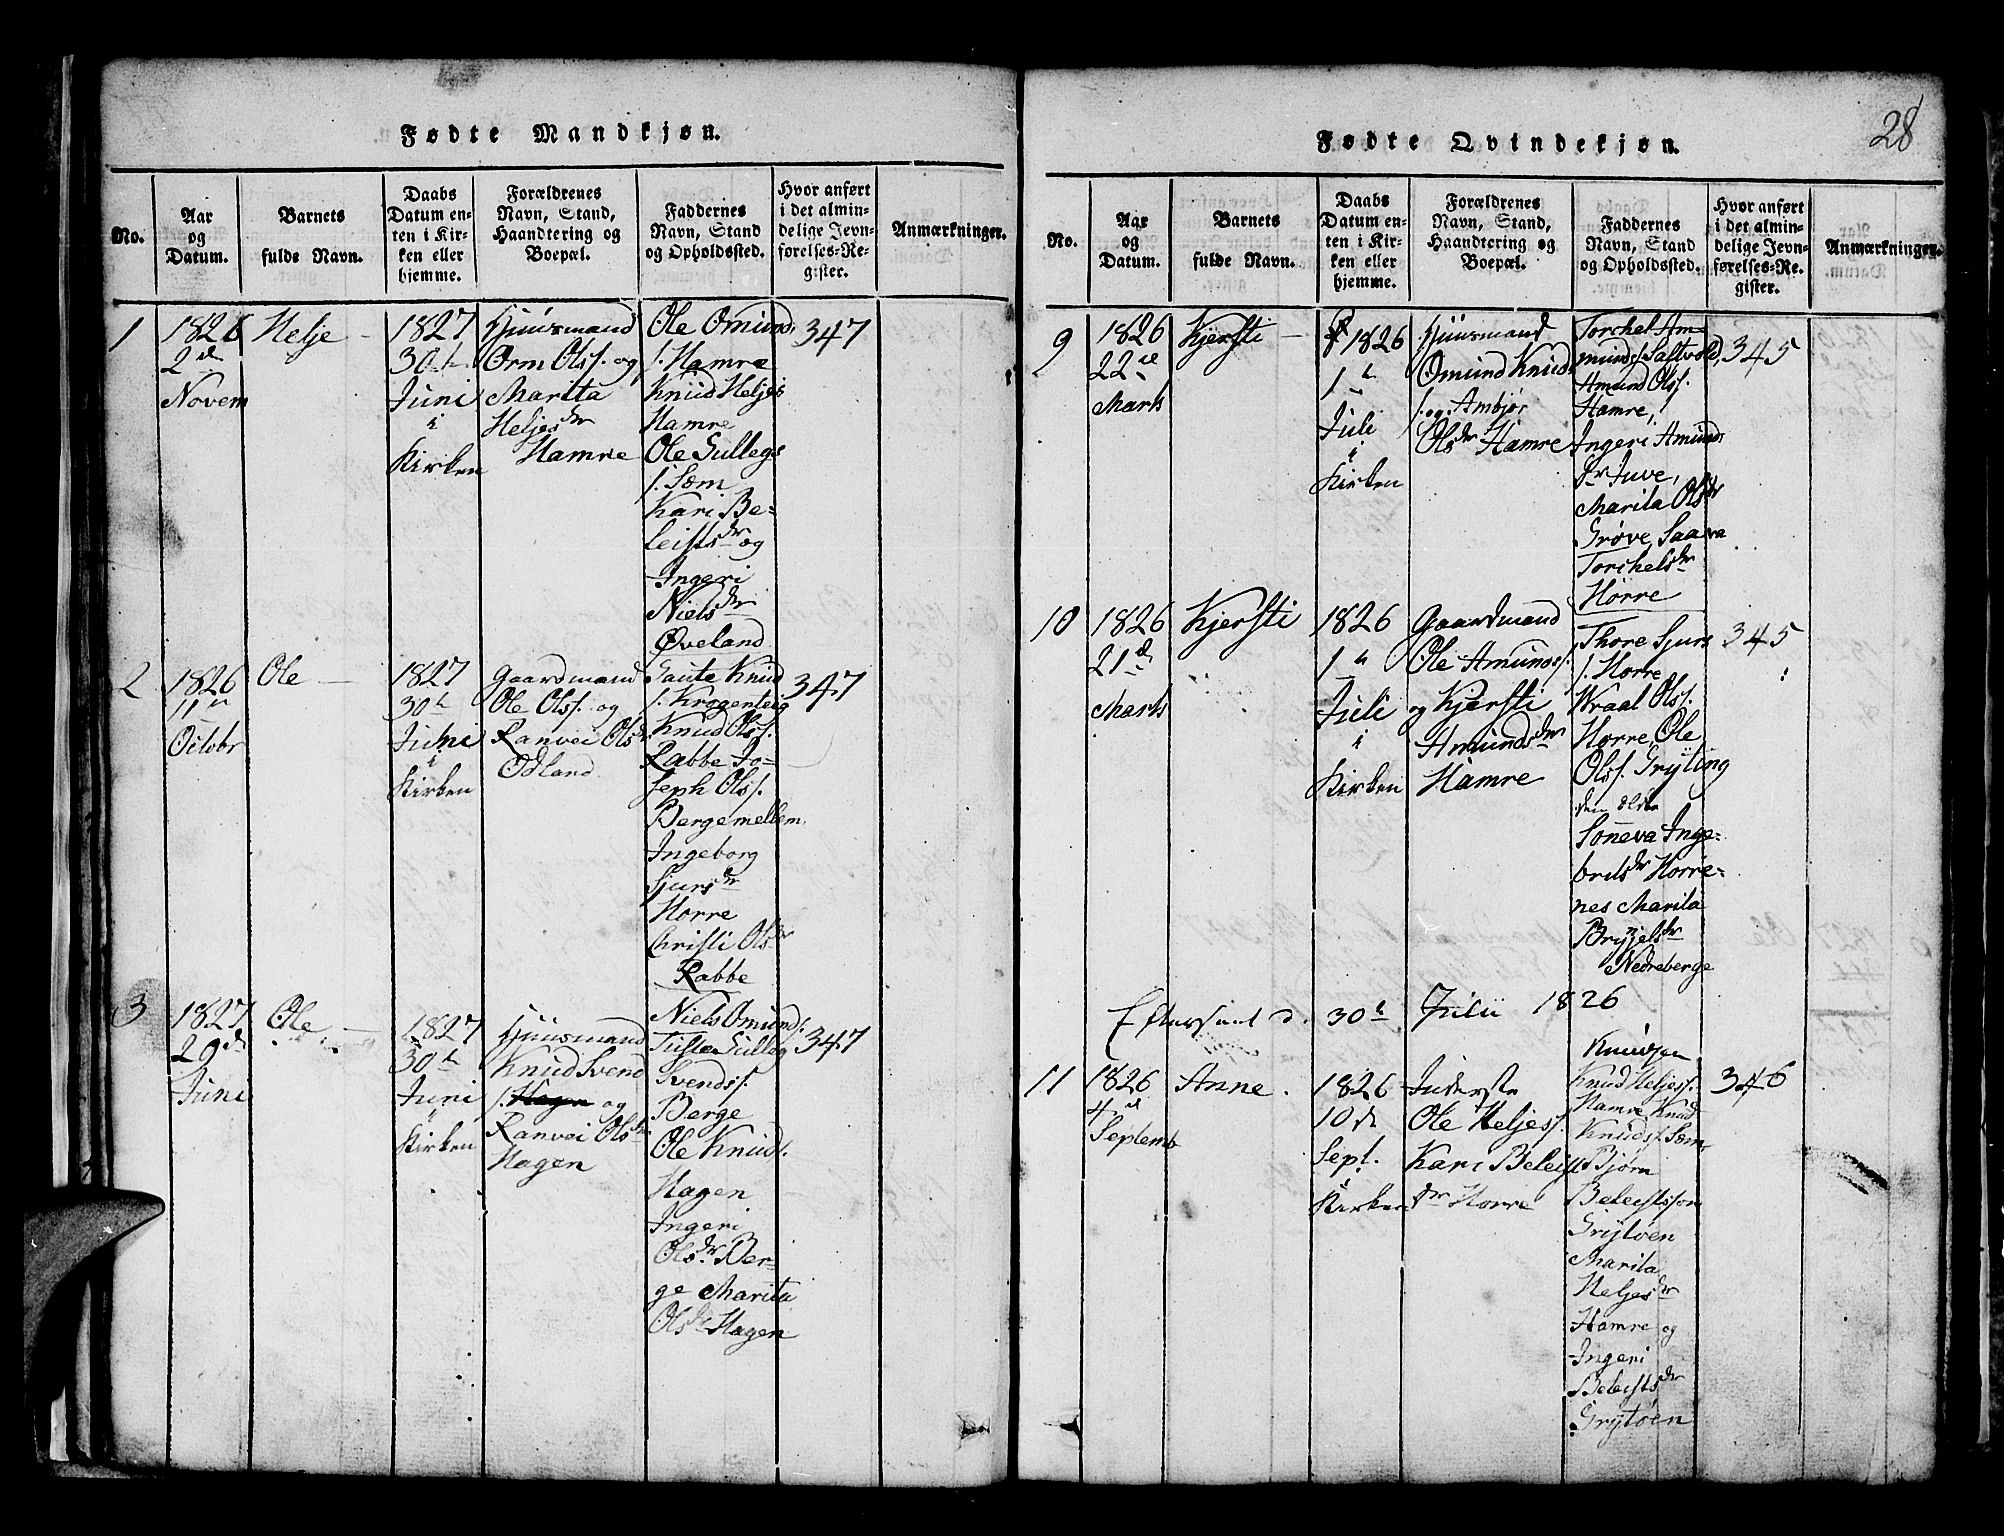 28
Fødte Mandkjøn.
No.
Aar
og
Datum.
Barnets
fulde Navn.
Daabs
Datum en-
ten i Kir-
ken eller
hjemme.
Forældrenes
Navn, Stand,
Haandtering og
Boepæl.
Faddernes
Navn, Stand
og Opholdssted.
Hvor anført
i det almin-
delige Jevn-
førelses-Re-
gister.
Anmærkninger.
1
1826
2d
Novem
Helje
1827
30te
Juni
i
Kirken
Huusmand
Orm Olss. og
Marita
Heljesdr
Hamre
Ole Omund
s. Hamre
Knud Heljes
Hamre
Ole Gulleg
s. Sæm
Kari Be-
leistsdr og
Ingeri
Nielsdr
Øveland
347
2
1826
11te
Octobr
Ole
1827
30te
Juni
i
Kirken
Gaardmand
Ole Olss. og
Ranvei Olsdr
Odland
Gaute Knud
s. Krogenteig
Knud Olss.
Rabbe Jo-
seph Olss.
Bergemellem
Ingeborg
Sjursdr
Horre
Christi Olsdr
Rabbe
347
3
1827
29d
Juni
Ole
1827
30te
Juni
i
Kirken
Huusmand
Knud Svend
s. Hagen og
Ranvei Olsdr
Hagen
Niels Omunds.
Tuste Gulleg
Svendss.
Berge
Ole Knuds.
Hagen
Ingeri
Olsdr Ber-
ge Marita
Olsdr Hagen
347
Fødte Qvindekjøn.
No.
Aar
og
Datum.
Barnets
fulde Navn.
Daabs
Datum en-
ten i Kir-
ken eller
hjemme.
Forældrenes
Navn, Stand,
Haandtering og
Boepæl.
Faddernes
Navn, Stand
og Opholdssted.
Hvor anført
i det almin-
delige Jevn-
førelses-Re-
gister.
Anmærkninger.
9
1826
22de
Marts
Kjersti
1826
1te
Juli
i
Kirken
Huusmand
Omund Knud
s. og Ambjør
Olsdr Hamre
Torchel Am-
munds. Saltvold,
Amund Olss.
Hamre,
Ingeri Amunds
dr Juve,
Marita Olsdr
Grøve, Saava
Torchelsdr
Horre
345
10
1826
21de
Marts
Kjersti
1826
1te
Juli
i
Kirken
Gaardmand
Ole Amundss.
og Kjersti
Amundsdr
Hamre
Thore Sjurs
s. Horre
Wraal Olss.
Horre, Ole
Olss. Gryting
den ældre
Søneva Inge-
britsdr Horre-
nes Marita
Bryjelsdr
Nedreberge
345
30te Julii 1826
11
1826
4de
Septemb
Anne.
1826
10de
Sept.
i
Kirken
Inderste
Ole Heljess.
Kari Beleist
dr Horre
Knudsen
Knud Heljess.
Hamre Knud
Knudss. Sæm
Bjørn
Beleistsson
Grytøen
Marita
Heljesdr
Hamre og
Ingeri
Beleistsdr
Grytøen
346